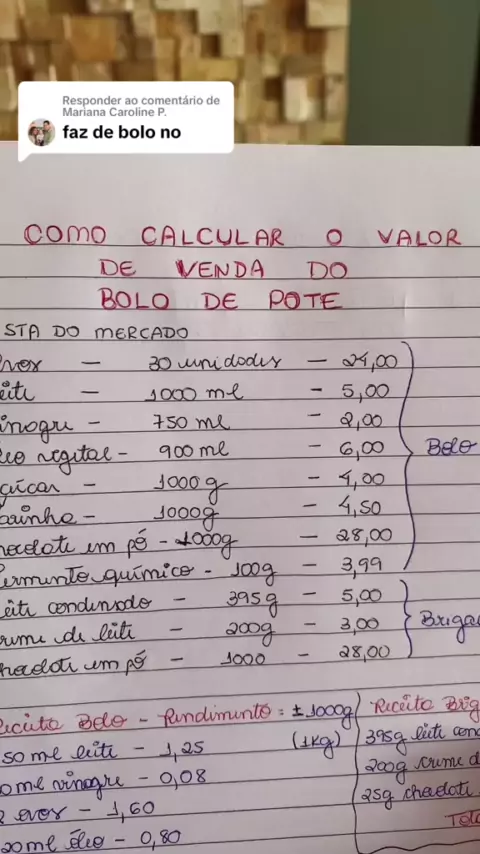 Responder ao comentário de
Mariana Caroline P.
faz de bolo no
COMO CALCULAR O VALOR
DE VENDA DO
BOLO DE POTE
STA DO MERCADO
vos — 30 unidades — 24,00
eite — 1000 ml - 5,00
inagre — 750 ml - 2,00
leo vegetal - 900 ml - 6,00
çúcar — 1000 g - 4,00
arinha — 1000g - 4,50
hocolate em pó - 1000g - 28,00
ermento químico - 100g - 3,99
Bolo
eite condensado - 395g - 5,00
reme de leite — 200g - 3,00
hocolate em pó — 1000 - 28,00
Briga
eceita Bolo - Rendimento = ±1000g
(1kg)
50 ml leite - 1,25
0 ml vinagre - 0,08
ovos - 1,60
20ml óleo - 0,80
Receita Brig
395g leite con
200g creme d
25g chocolate
Tota